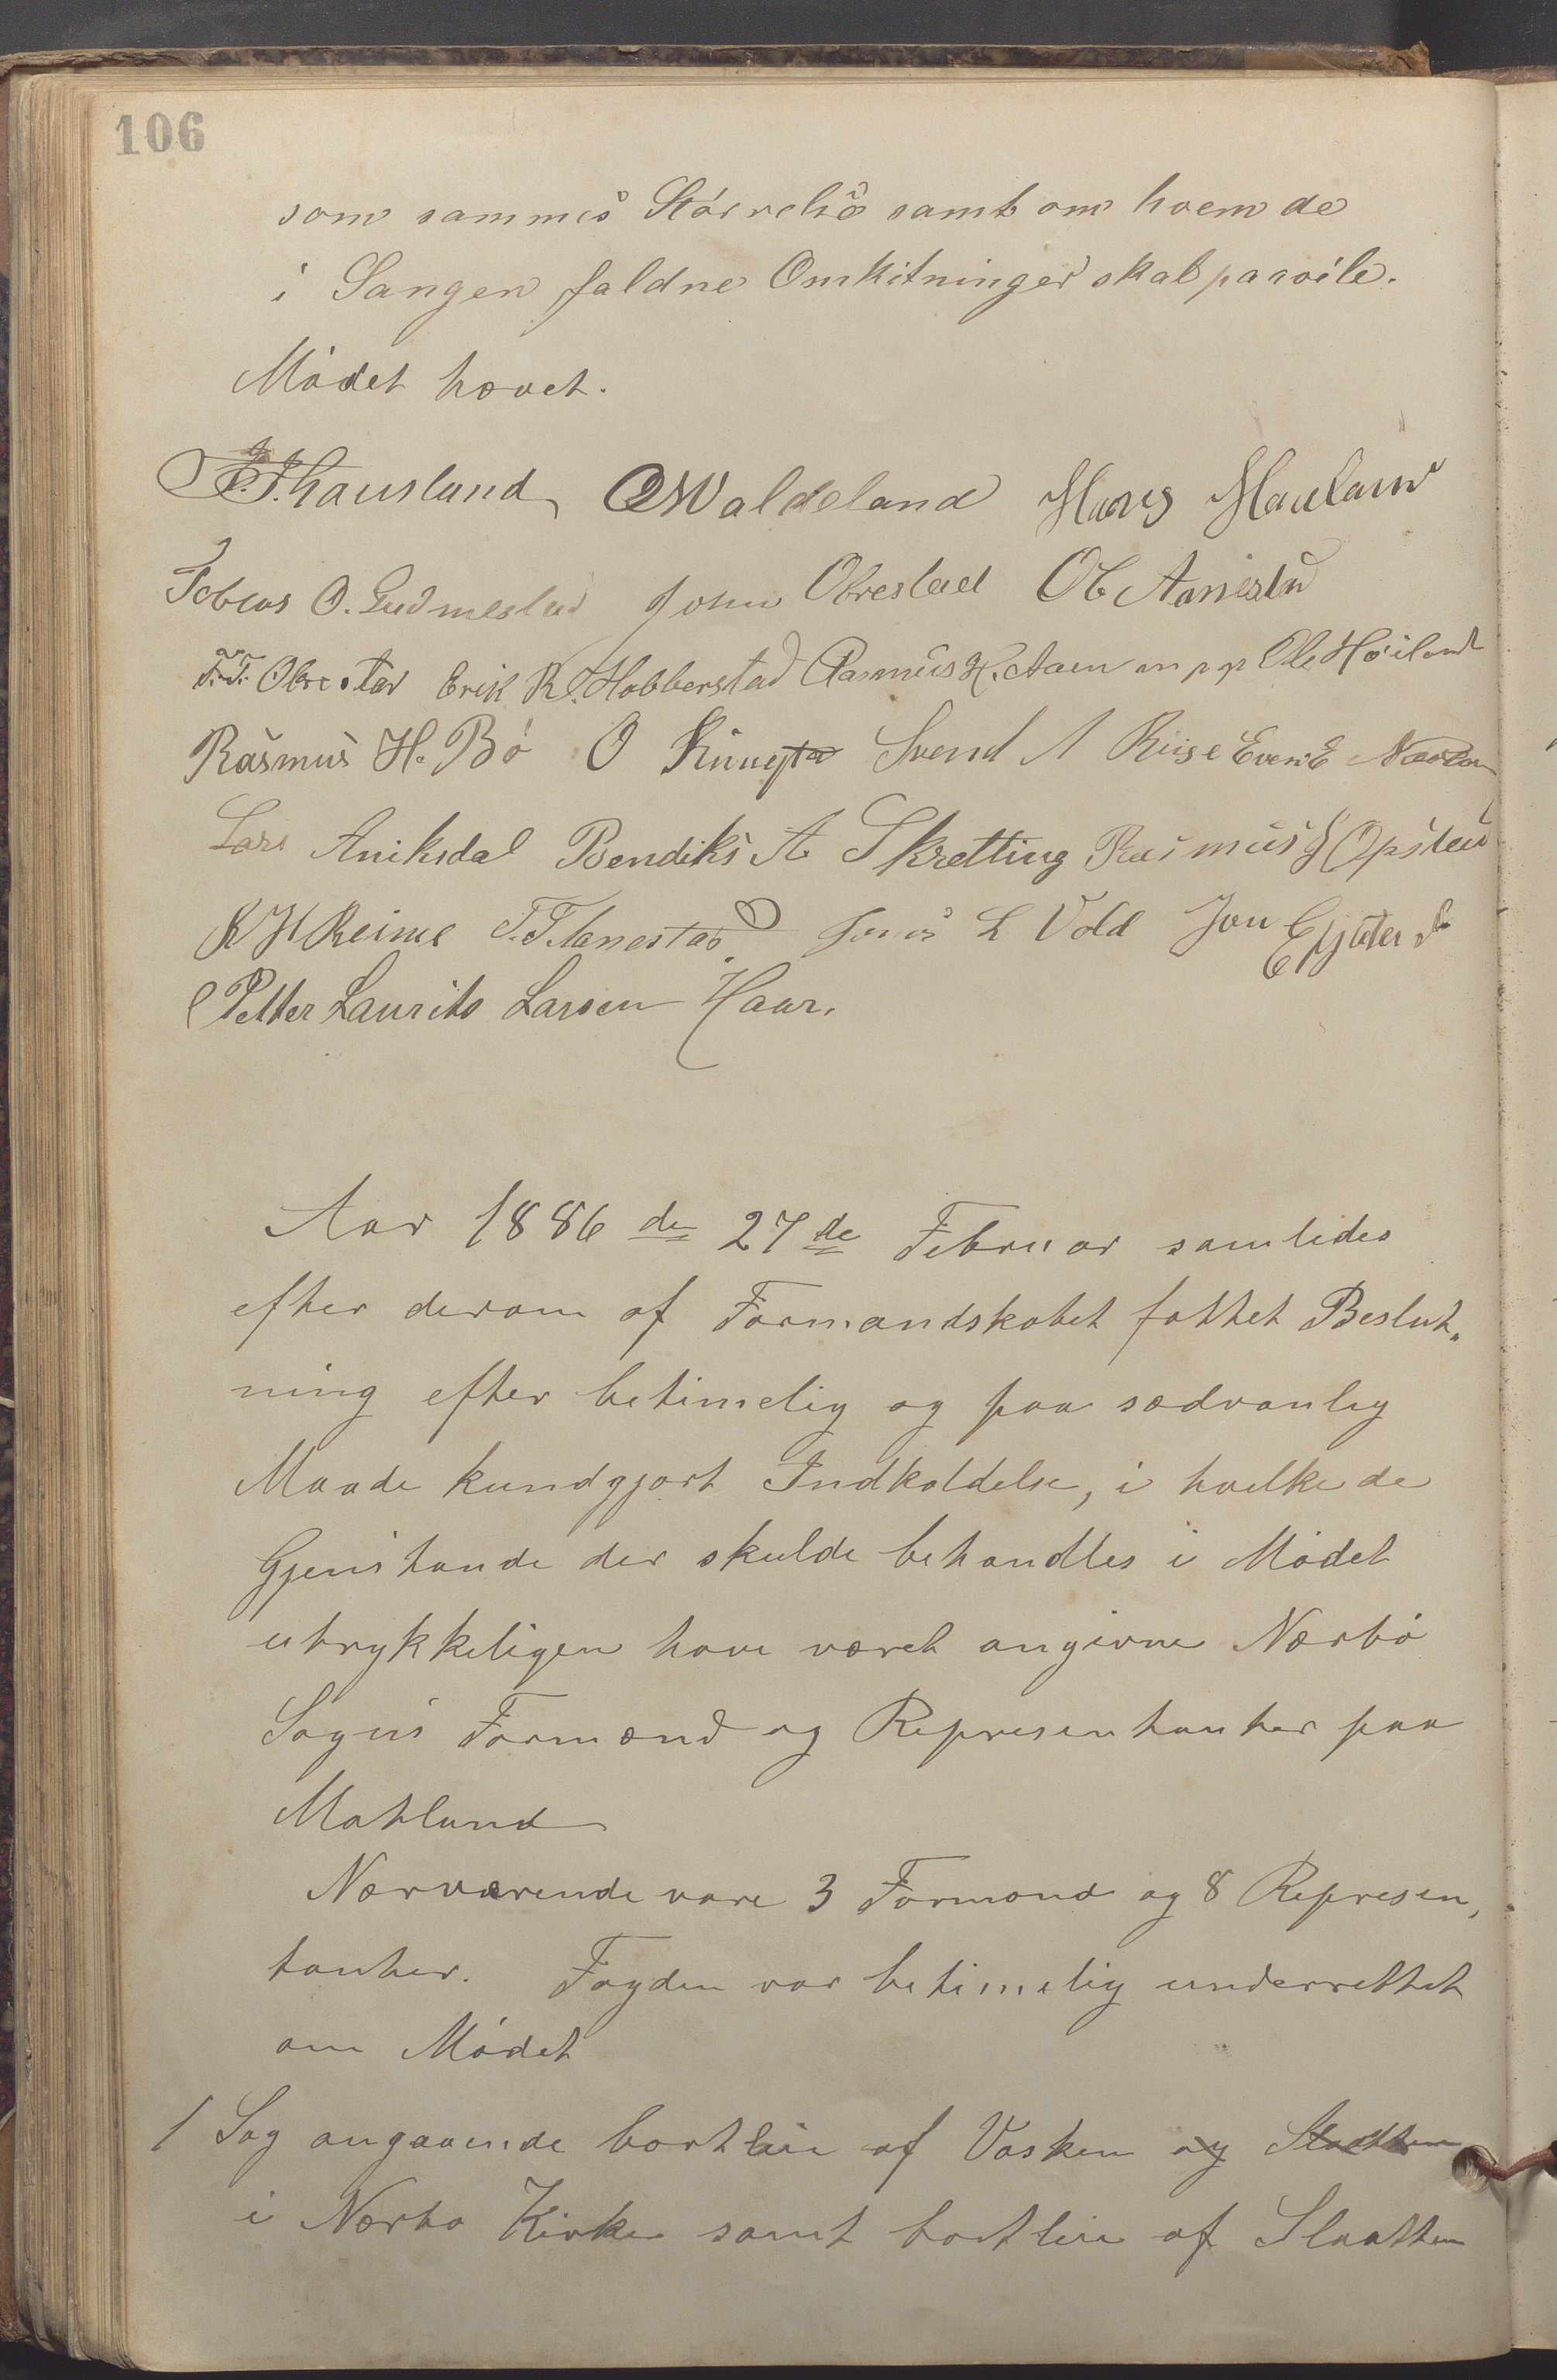 106
som sammes Størrelse samt om hvem de
i Sangen faldne Omkitninger skal paavile.
Mødet hævet.
Thausland OWaldeland Hans Haulan
Tobias O. Gudmestad John Obrestad Ob Aanestd
T.T. Obrestad Erik R. Hobberstad Rasmus H. Aaen m p p Ole Høiland
Rasmus H. Bø O Svend A Riise Even E Nærlan
Lars Aniksdal Bendiks A Skretting Rasmus Opstad
K H Reime T.T. Aanestad Jonas L Vold Jon
Petter Laurits Larsen Haar.
Aar 1886 den 27de Februar samledes
efter derom af Formandskabet fattet Beslut„
ning efter betimelig og paa sædvanlig
Maade kundgjort Indkaldelse, i hvilke de
Gjenstande der skulde behandles i Mødet
utrykkeligen have været angivne Nærbø
Sogns Formænd og Representanter paa
Motland
Nærværende vare 3 Formænd og 8 Represen„
tanter. Fogden var betimelig underrettet
om Mødet
1 Sag angaaende bortleie af Vasken og Slaatten
i Nærbø Kirke samt bortleie af Slaatten